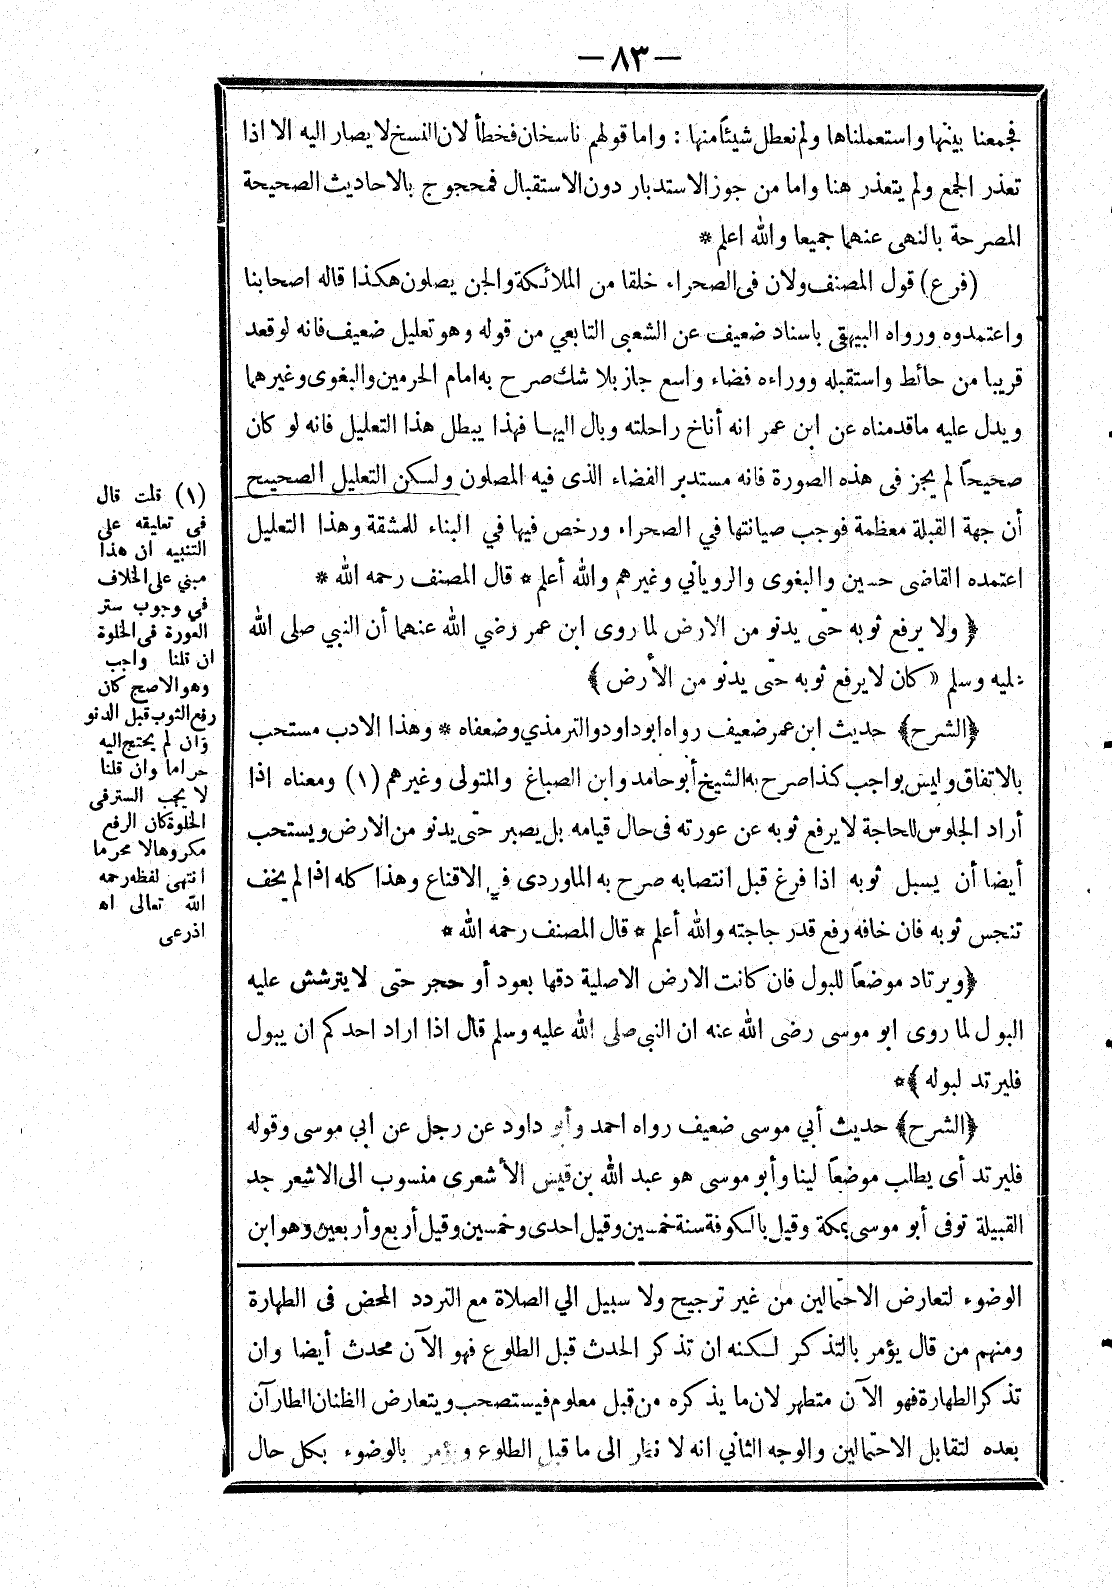 — ٨٣ —
فجمعنا بينها واستعملناها ولم نعطل شيئاً منها : واما قولهم ناسخان فخطأ لان النسخ لا يصار اليه الا اذا
تعذر الجمع ولم يتعذر هنا واما من جوز الاستدبار دون الاستقبال فمحجوج بالاحاديث الصحيحة
المصرحة بالنهى عنهما جميعا والله اعلم *
(فرع) قول المصنف ولان فى الصحراء خلقا من الملائكة والجن يصلون هكذا قاله اصحابنا
واعتمدوه ورواه البيهقى باسناد ضعيف عن الشعبى التابعي من قوله وهو تعليل ضعيف فانه لو قعد
قريبا من حائط واستقبله ووراءه فضاء واسع جاز بلا شك صرح به امام الحرمين والبغوى وغيرهما
ويدل عليه ما قدمناه عن ابن عمر انه أناخ راحلته وبال اليها فهذا يبطل هذا التعليل فانه لو كان
صحيحاً لم يجز فى هذه الصورة فانه مستدبر الفضاء الذى فيه المصلون ولكن التعليل الصحيح
أن جهة القبلة معظمة فوجب صيانتها في الصحراء ورخص فيها في البناء للمشقة وهذا التعليل
اعتمده القاضى حسين والبغوى والروياني وغيرهم والله أعلم * قال المصنف رحمه الله *
﴿ ولا يرفع ثوبه حتى يدنو من الارض لما روى ابن عمر رضي الله عنهما أن النبي صلى الله
عليه وسلم « كان لا يرفع ثوبه حتى يدنو من الأرض ﴾
﴿الشرح﴾ حديث ابن عمر ضعيف رواه ابو داود والترمذي وضعفاه * وهذا الادب مستحب
بالاتفاق وليس بواجب كذا صرح به الشيخ أبو حامد وابن الصباغ والمتولى وغيرهم (١) ومعناه اذا
أراد الجلوس للحاجة لا يرفع ثوبه عن عورته فى حال قيامه بل يصبر حتى يدنو من الارض ويستحب
أيضا أن يسبل ثوبه اذا فرغ قبل انتصابه صرح به الماوردى في الاقناع وهذا كله اذا لم يخف
تنجس ثوبه فان خافه رفع قدر حاجته والله أعلم * قال المصنف رحمه الله *
﴿ويرتاد موضعاً للبول فان كانت الارض الاصلية دقها بعود أو حجر حتى لا يترشش عليه
البول لما روى ابو موسى رضى الله عنه ان النبي صلى الله عليه وسلم قال اذا اراد احدكم ان يبول
فليرتد لبوله ﴾*
﴿الشرح﴾ حديث أبي موسى ضعيف رواه احمد وأبو داود عن رجل عن ابي موسى وقوله
فليرتد أى يطلب موضعاً لينا وأبو موسى هو عبد الله بن قيس الأشعرى منسوب الى الاشعر جد
القبيلة توفى أبو موسى بمكة وقيل بالكوفة سنة خمسين وقيل احدى وخمسين وقيل أربع وأربعين وهو ابن
(١) قلت قال
فى تعليقه على
التنبيه ان هذا
مبني على الخلاف
في وجوب ستر
العورة فى الخلوة
ان قلنا واجب
وهو الاصح كان
رفع الثوب قبل الدنو
وان لم يحتج اليه
حراما وان قلنا
لا يجب الستر فى
الخلوة كان الرفع
مكروها لا محرما
انتهى لفظه رحمه
الله تعالى اه
اذرعى
الوضوء لتعارض الاحتمالين من غير ترجيح ولا سبيل الي الصلاة مع التردد المحض فى الطهارة
ومنهم من قال يؤمر بالتذكر لكنه ان تذكر الحدث قبل الطلوع فهو الآن محدث أيضا وان
تذكر الطهارة فهو الآن متطهر لان ما يذكره من قبل معلوم فيستصحب ويتعارض الظنان الطارآن
بعده لتقابل الاحتمالين والوجه الثاني انه لا نظر الى ما قبل الطلوع ويؤمر بالوضوء بكل حال